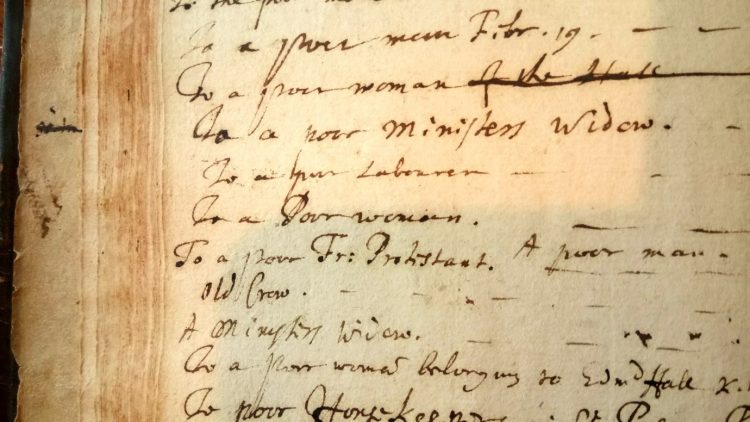 To the poor
To a poor man Febr. 19. - - -
To a poor woman of the Hall
To a poor Ministers Widow. -
To a poor Labourer - - -
To a Poor woman. - -
To a poor Fr: Protestant. A poor man -
Old Crow. - - - - - -
A Ministers Widow. - - - -
To a poor woman belonging to Edmd Hall
To poor House Keepers in St. P